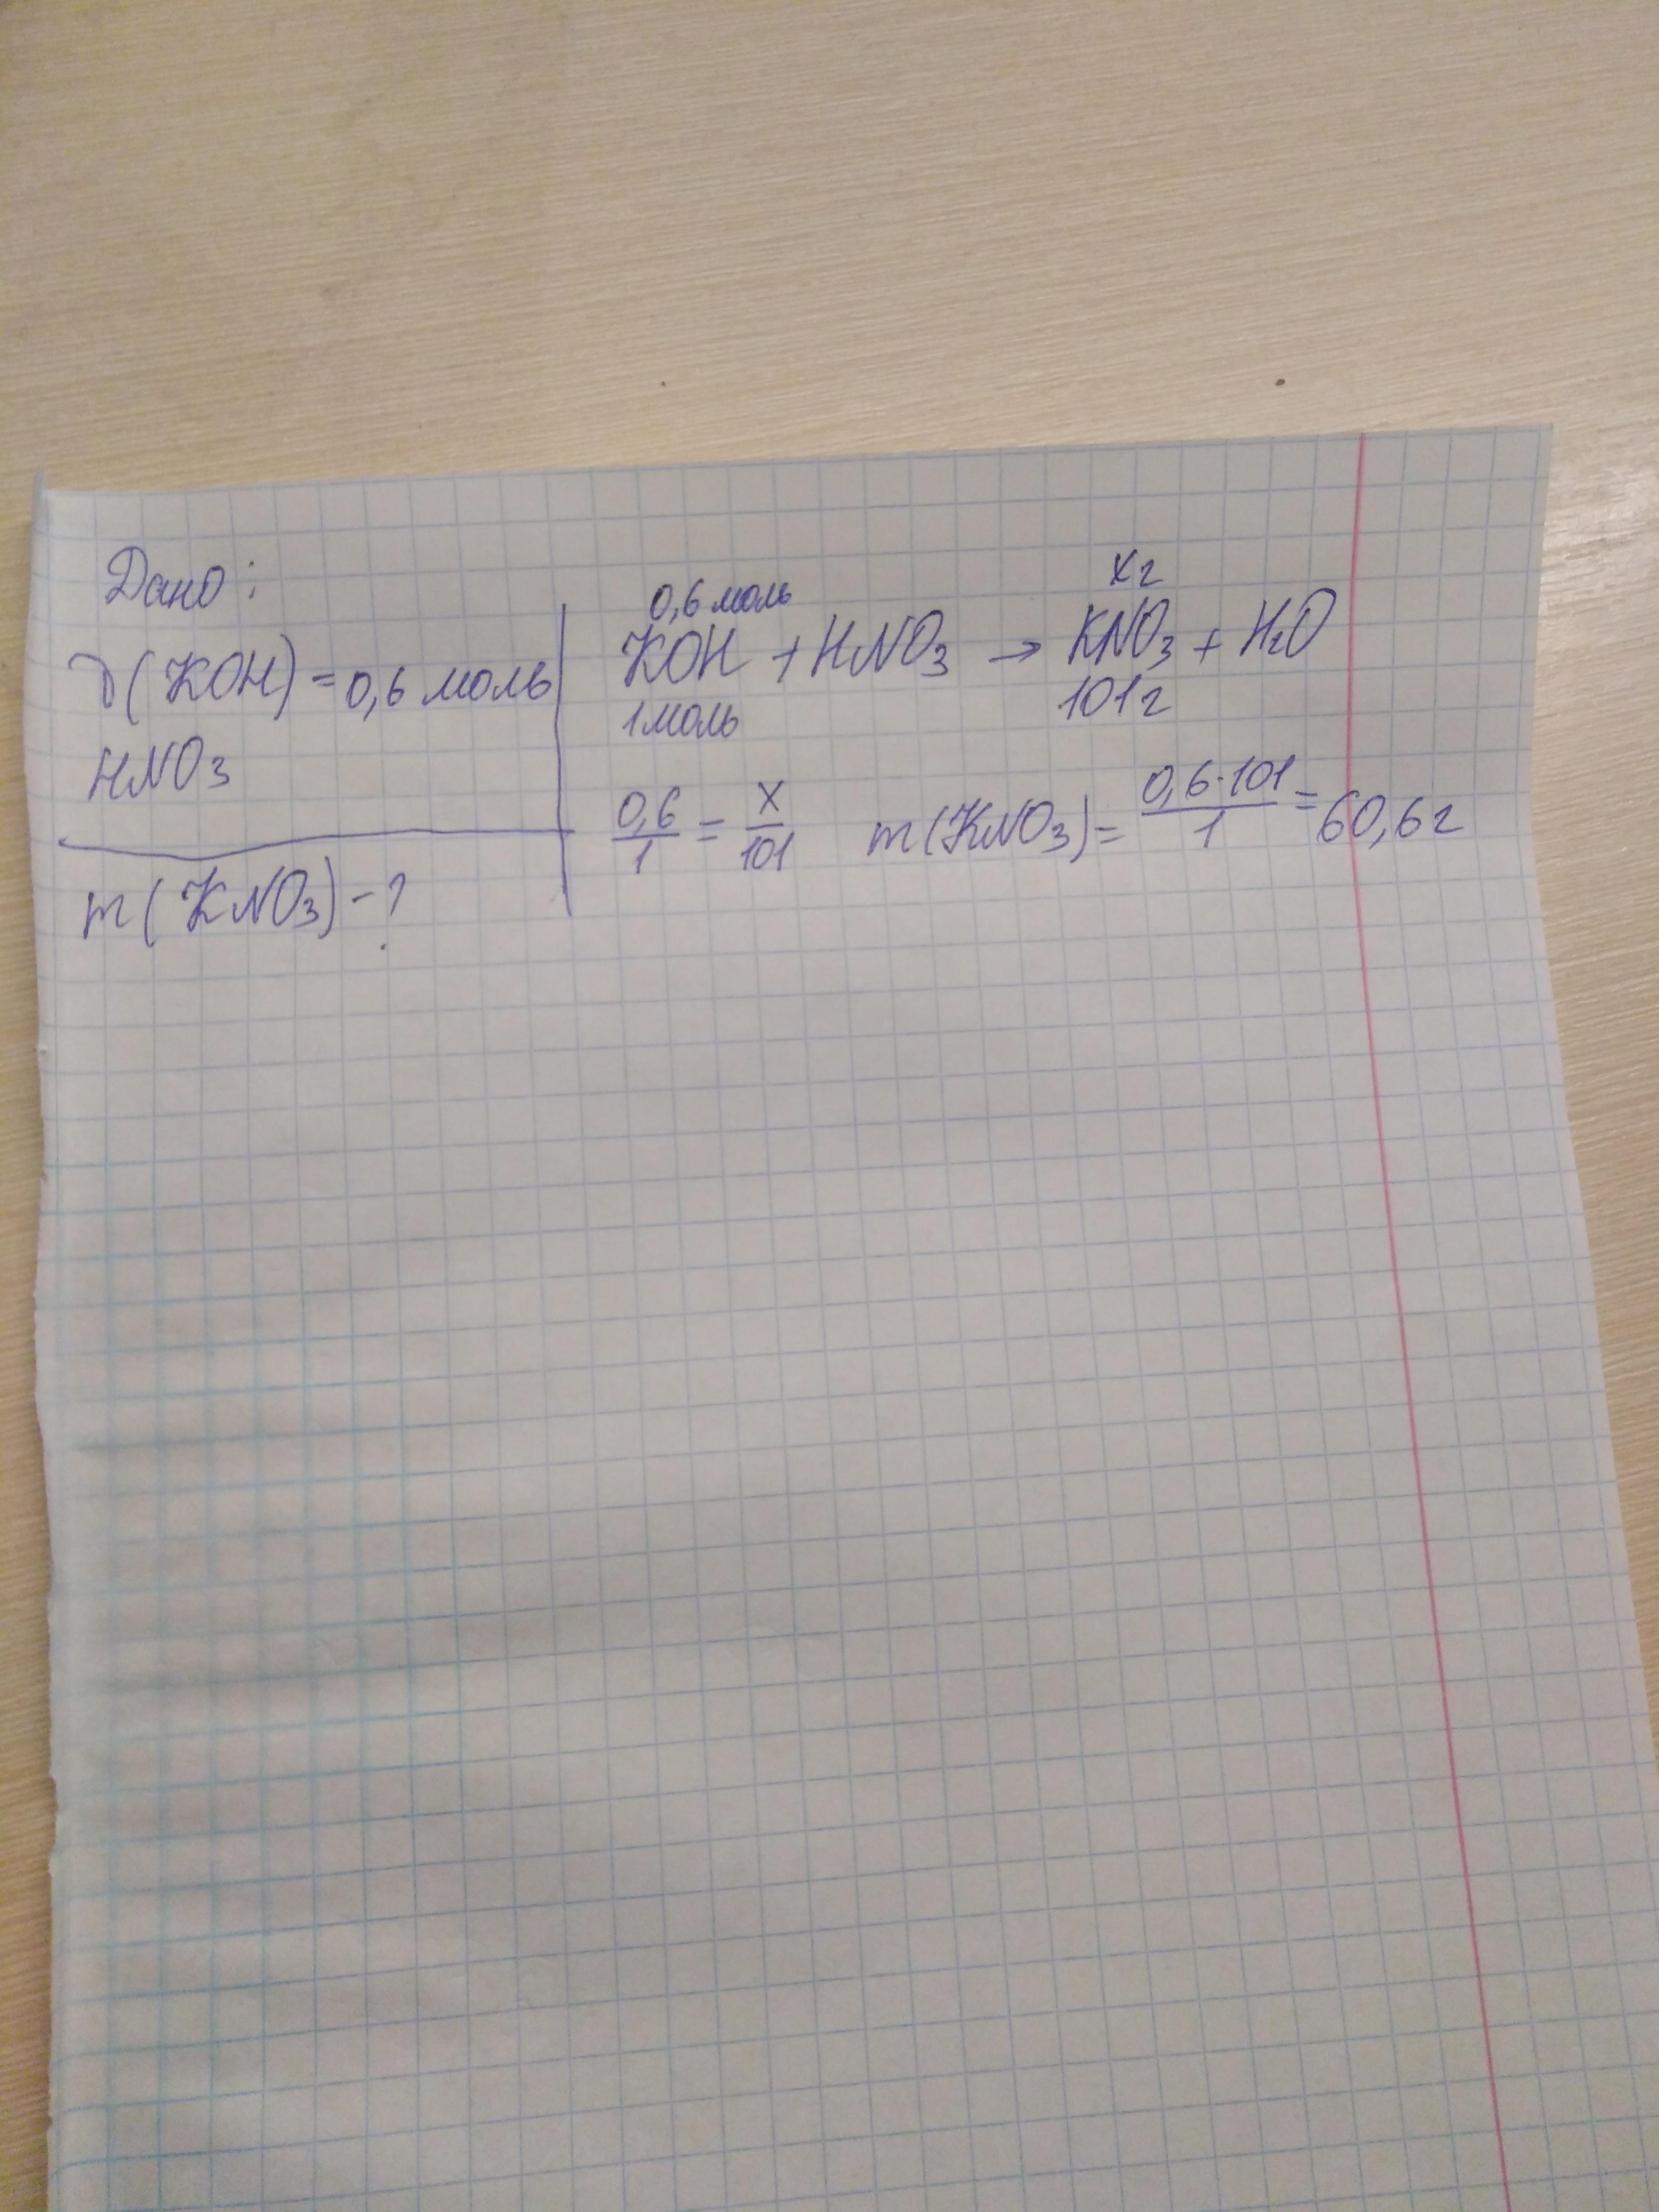 Дано:
ν(KOH)=0,6 моль
HNO₃
m(KNO₃)-?
0,6 моль xг
KOH + HNO₃ → KNO₃ + H₂O
1моль 101г
0,6/1 = x/101 m(KNO₃)= 0,6·101/1 = 60,6г